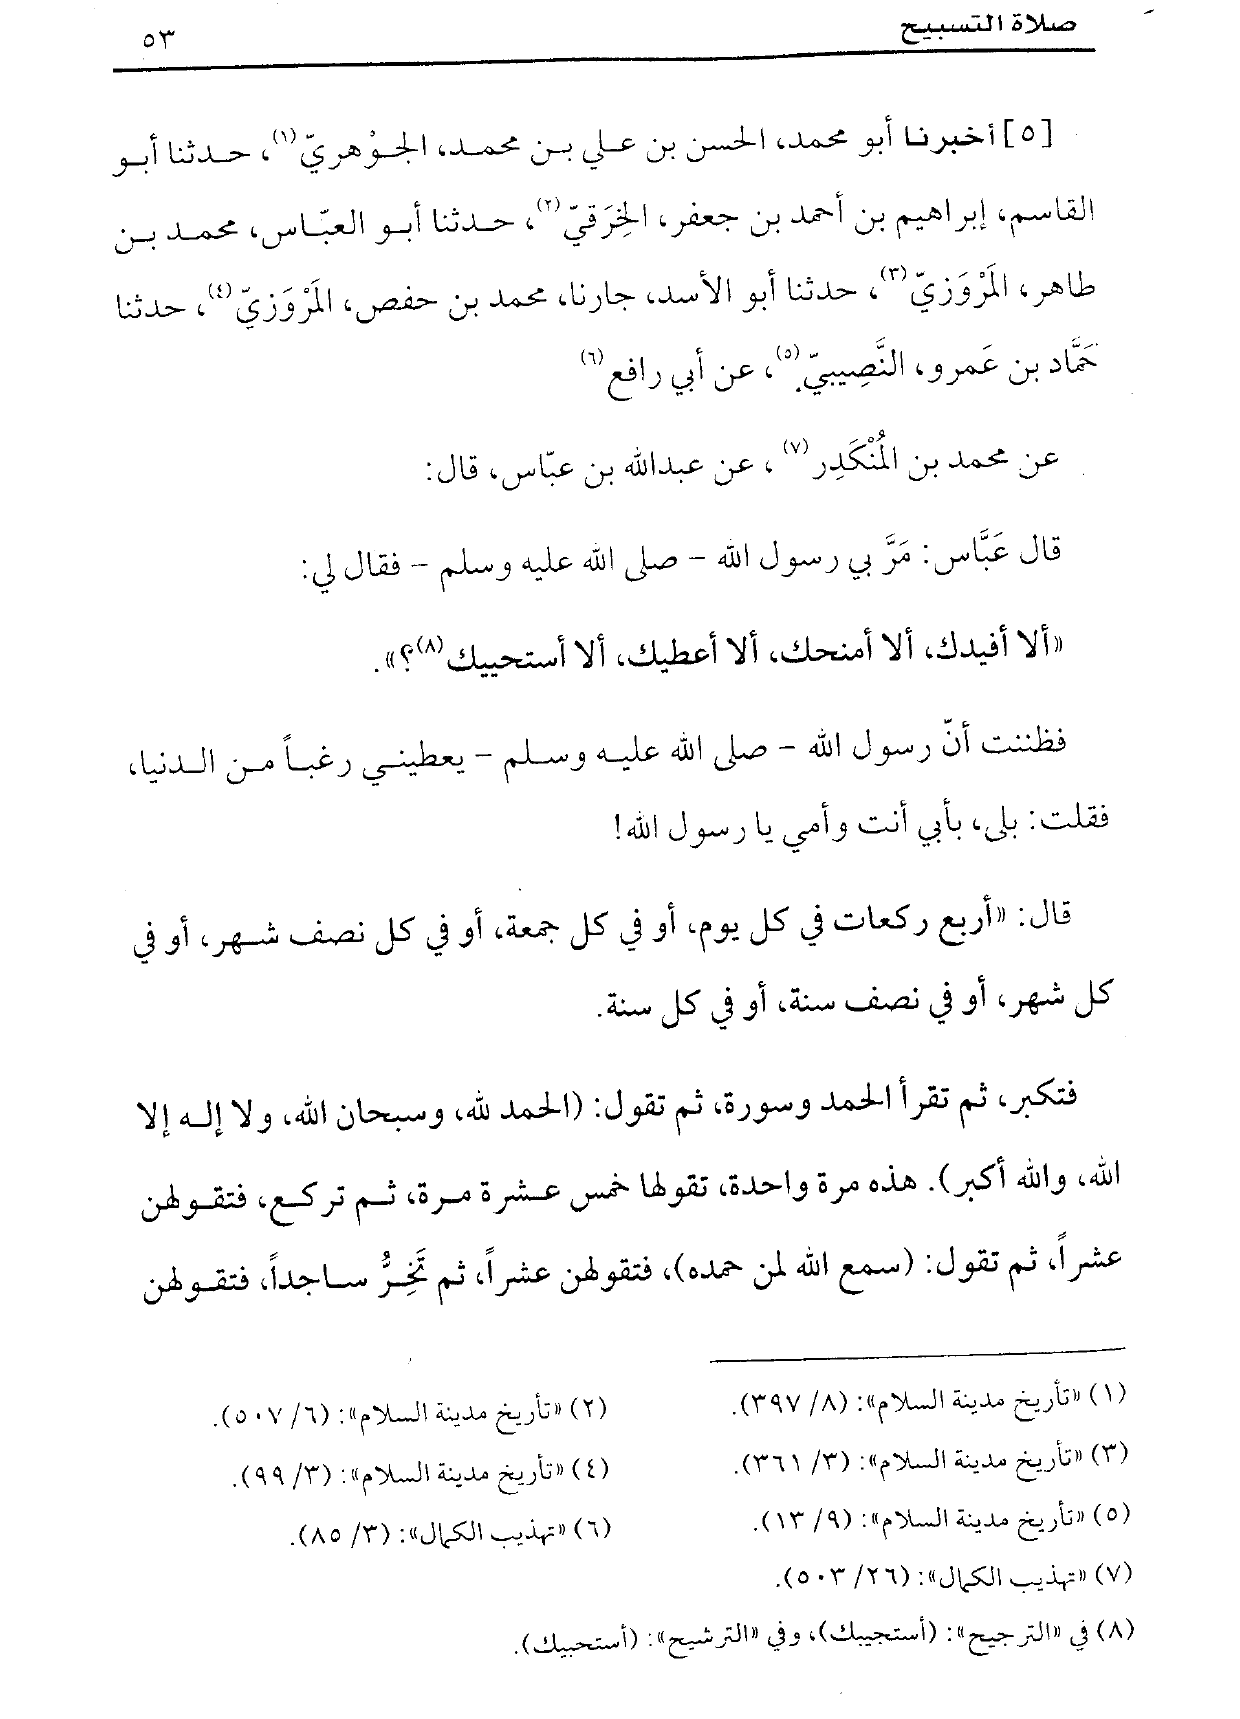 صلاة التسبيح
٥٣
[٥] أخبرنا أبو محمد، الحسن بن علي بن محمد، الجَوْهريّ(١)، حدثنا أبو
القاسم، إبراهيم بن أحمد بن جعفر، الخِرَقيّ(٢)، حدثنا أبو العبّاس، محمد بن
طاهر، المَرْوَزيّ(٣)، حدثنا أبو الأسد، جارنا، محمد بن حفص، المَرْوَزيّ(٤)، حدثنا
حَمَّاد بن عَمرو، النَّصِيبيّ(٥)، عن أبي رافع(٦)
عن محمد بن المُنْكَدِر(٧)، عن عبدالله بن عبّاس، قال:
قال عَبَّاس: مَرَّ بي رسول الله - صلى الله عليه وسلم - فقال لي:
«ألا أفيدك، ألا أمنحك، ألا أعطيك، ألا أستحييك(٨)؟».
فظننت أنّ رسول الله - صلى الله عليه وسلم - يعطيني رغباً من الدنيا،
فقلت: بلى، بأبي أنت وأمي يا رسول الله!
قال: «أربع ركعات في كل يوم، أو في كل جمعة، أو في كل نصف شهر، أو في
كل شهر، أو في نصف سنة، أو في كل سنة.
فتكبر، ثم تقرأ الحمد وسورة، ثم تقول: (الحمد لله، وسبحان الله، ولا إله إلا
الله، والله أكبر). هذه مرة واحدة، تقولها خمس عشرة مرة، ثم تركع، فتقولهن
عشراً، ثم تقول: (سمع الله لمن حمده)، فتقولهن عشراً، ثم تَخِرُّ ساجداً، فتقولهن
(١) «تأريخ مدينة السلام»: (٨/ ٣٩٧).
(٢) «تأريخ مدينة السلام»: (٦/ ٥٠٧).
(٣) «تأريخ مدينة السلام»: (٣/ ٣٦١).
(٤) «تأريخ مدينة السلام»: (٣/ ٩٩).
(٥) «تأريخ مدينة السلام»: (٩/ ١٣).
(٦) «تهذيب الكمال»: (٣/ ٨٥).
(٧) «تهذيب الكمال»: (٢٦/ ٥٠٣).
(٨) في «الترجيح»: (أستجيبك)، وفي «الترشيح»: (أستحبيك).